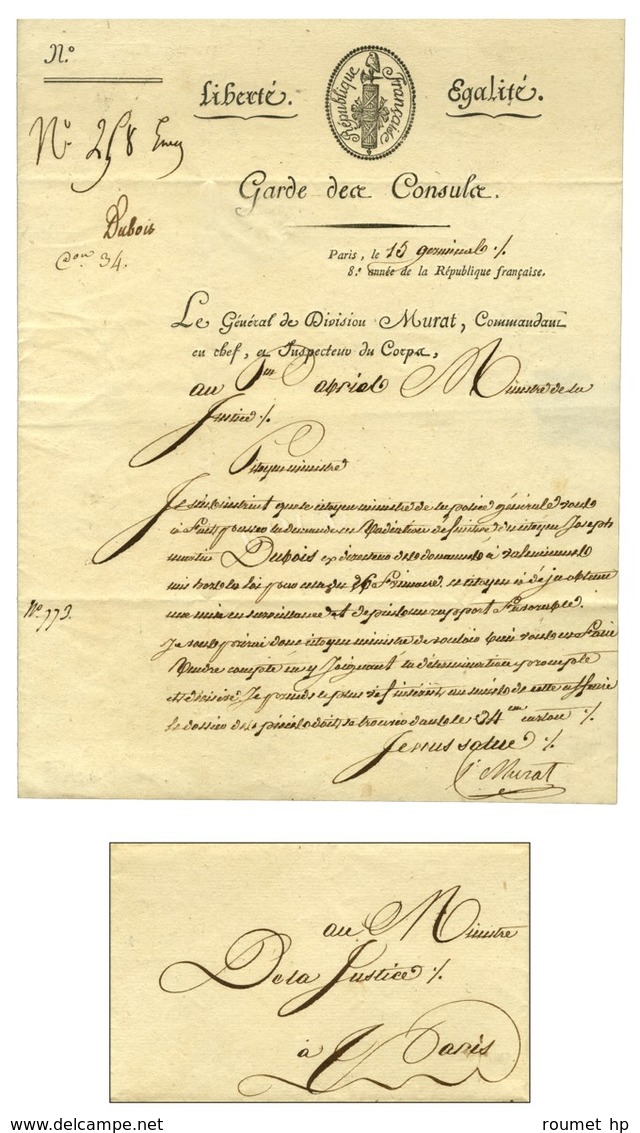 N.º
République Française
Liberté. Egalité.
Nº 258
Garde des Consuls.
Dubois
34.
Paris, le 15 germinal
8.e année de la République française.
Le Général de Division Murat, Commandant
en chef, et Inspecteur du Corps,
au Cen abrial Ministre de la
Justice
Citoyen ministre
Je suis instruit que le citoyen ministre de la police générale vous
à fait passer la demande en Radiation définitive du citoyen Joseph
martin Dubois ex directeur des douannes à valenciennes
mis hors la loi pour cause du 26 Frimaire. ce citoyen à déja obtenu
une mise en surveillance et depuis un rapport Favorable.
Nº 773.
Je vous prierai donc citoyen ministre de vouloir bien vous en Faire
Rendre compte en y Joignant la détermination prompte
et désirée. Je prends le plus vif interêt au succès de cette affaire
le dossier des pièces doit se trouver dans le 34 eme carton
Je vous salue
Murat
au Ministre
De la Justice
à Paris
www.delcampe.net
roumet hp